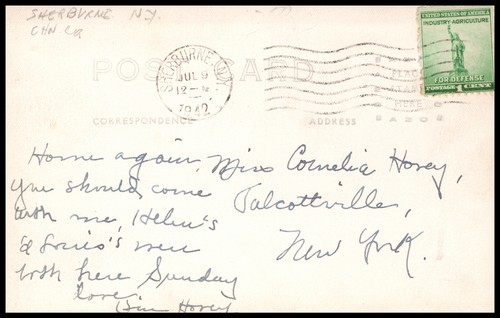 SHERBURNE N.Y.
CHN Co
POST CARD
SHERBURNE, N.Y.
JUL 9
12 - M
1942
UNITED STATES OF AMERICA
INDUSTRY AGRICULTURE
FOR DEFENSE
POSTAGE 1 CENT
PLACE
STAMP
HERE
CORRESPONDENCE
ADDRESS
Home again,
you should come
with me, Helen's
& Louis's were
both here Sunday
love
Hovey
Miss Cornelia Hovey,
Talcottville,
New York.